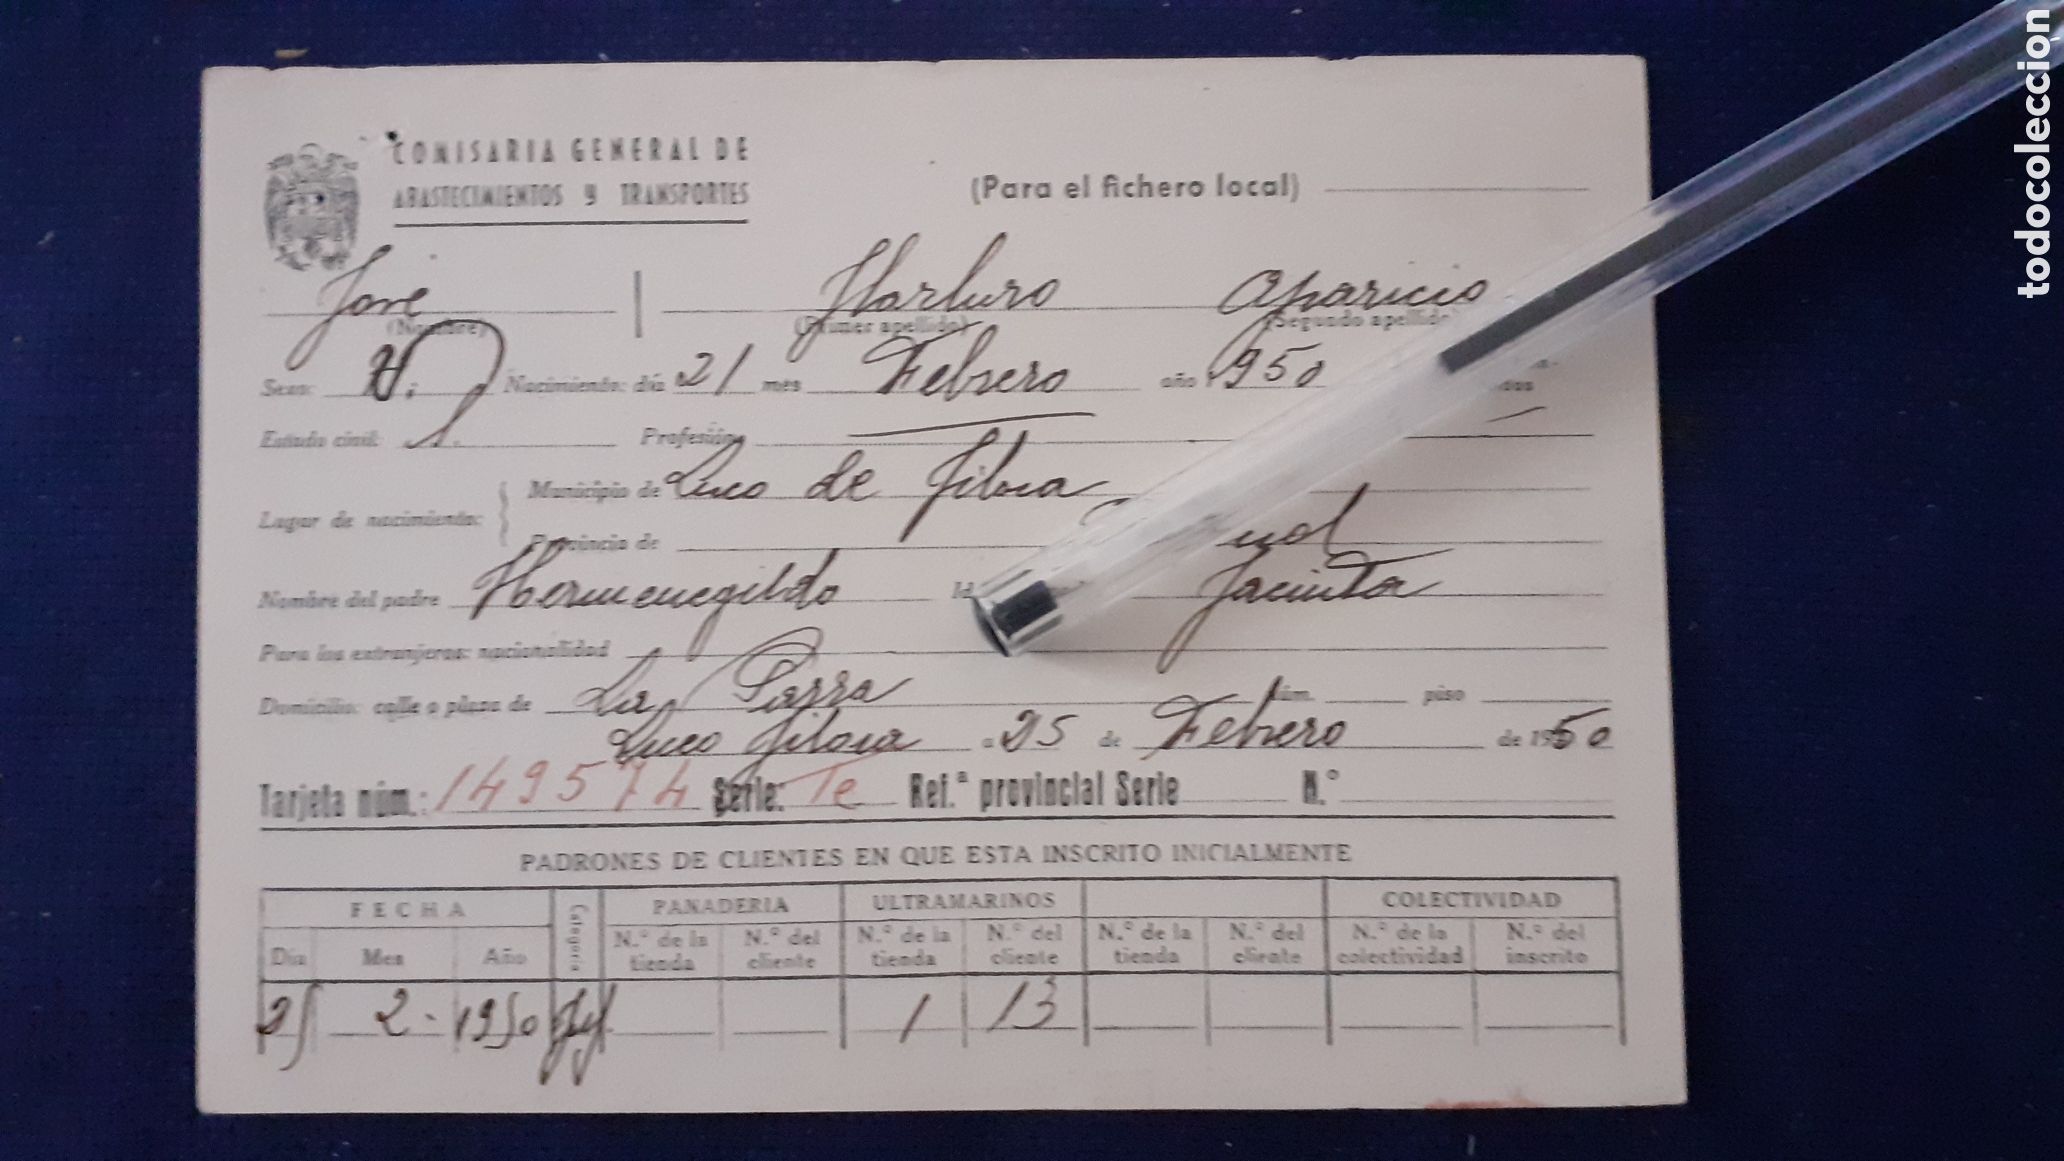 COMISARIA GENERAL DE
ABASTECIMIENTOS Y TRANSPORTES
(Para el fichero local)
José Harturo Aparicio
(Nombre) (Primer apellido) (Segundo apellido)
Sexo: H. Nacimiento: día 21 mes Febrero año 1950
Estado civil: S. Profesión
Lugar de nacimiento: Municipio de Luco de Jiloca
Provincia de
Nombre del padre Hermenegildo Jacinta
Para los extranjeros: nacionalidad
Domicilio: calle o plaza de La Parra núm. piso
Luco Jiloca a 25 de Febrero de 1950
Tarjeta núm.: 149574 Serie: Te Ref.ª provincial Serie N.º
PADRONES DE CLIENTES EN QUE ESTA INSCRITO INICIALMENTE
FECHA Categoría PANADERIA ULTRAMARINOS COLECTIVIDAD
Día Mes Año N.º de la tienda N.º del cliente N.º de la tienda N.º del cliente N.º de la tienda N.º del cliente N.º de la colectividad N.º del inscrito
25 2 - 1950 1 13
todocoleccion